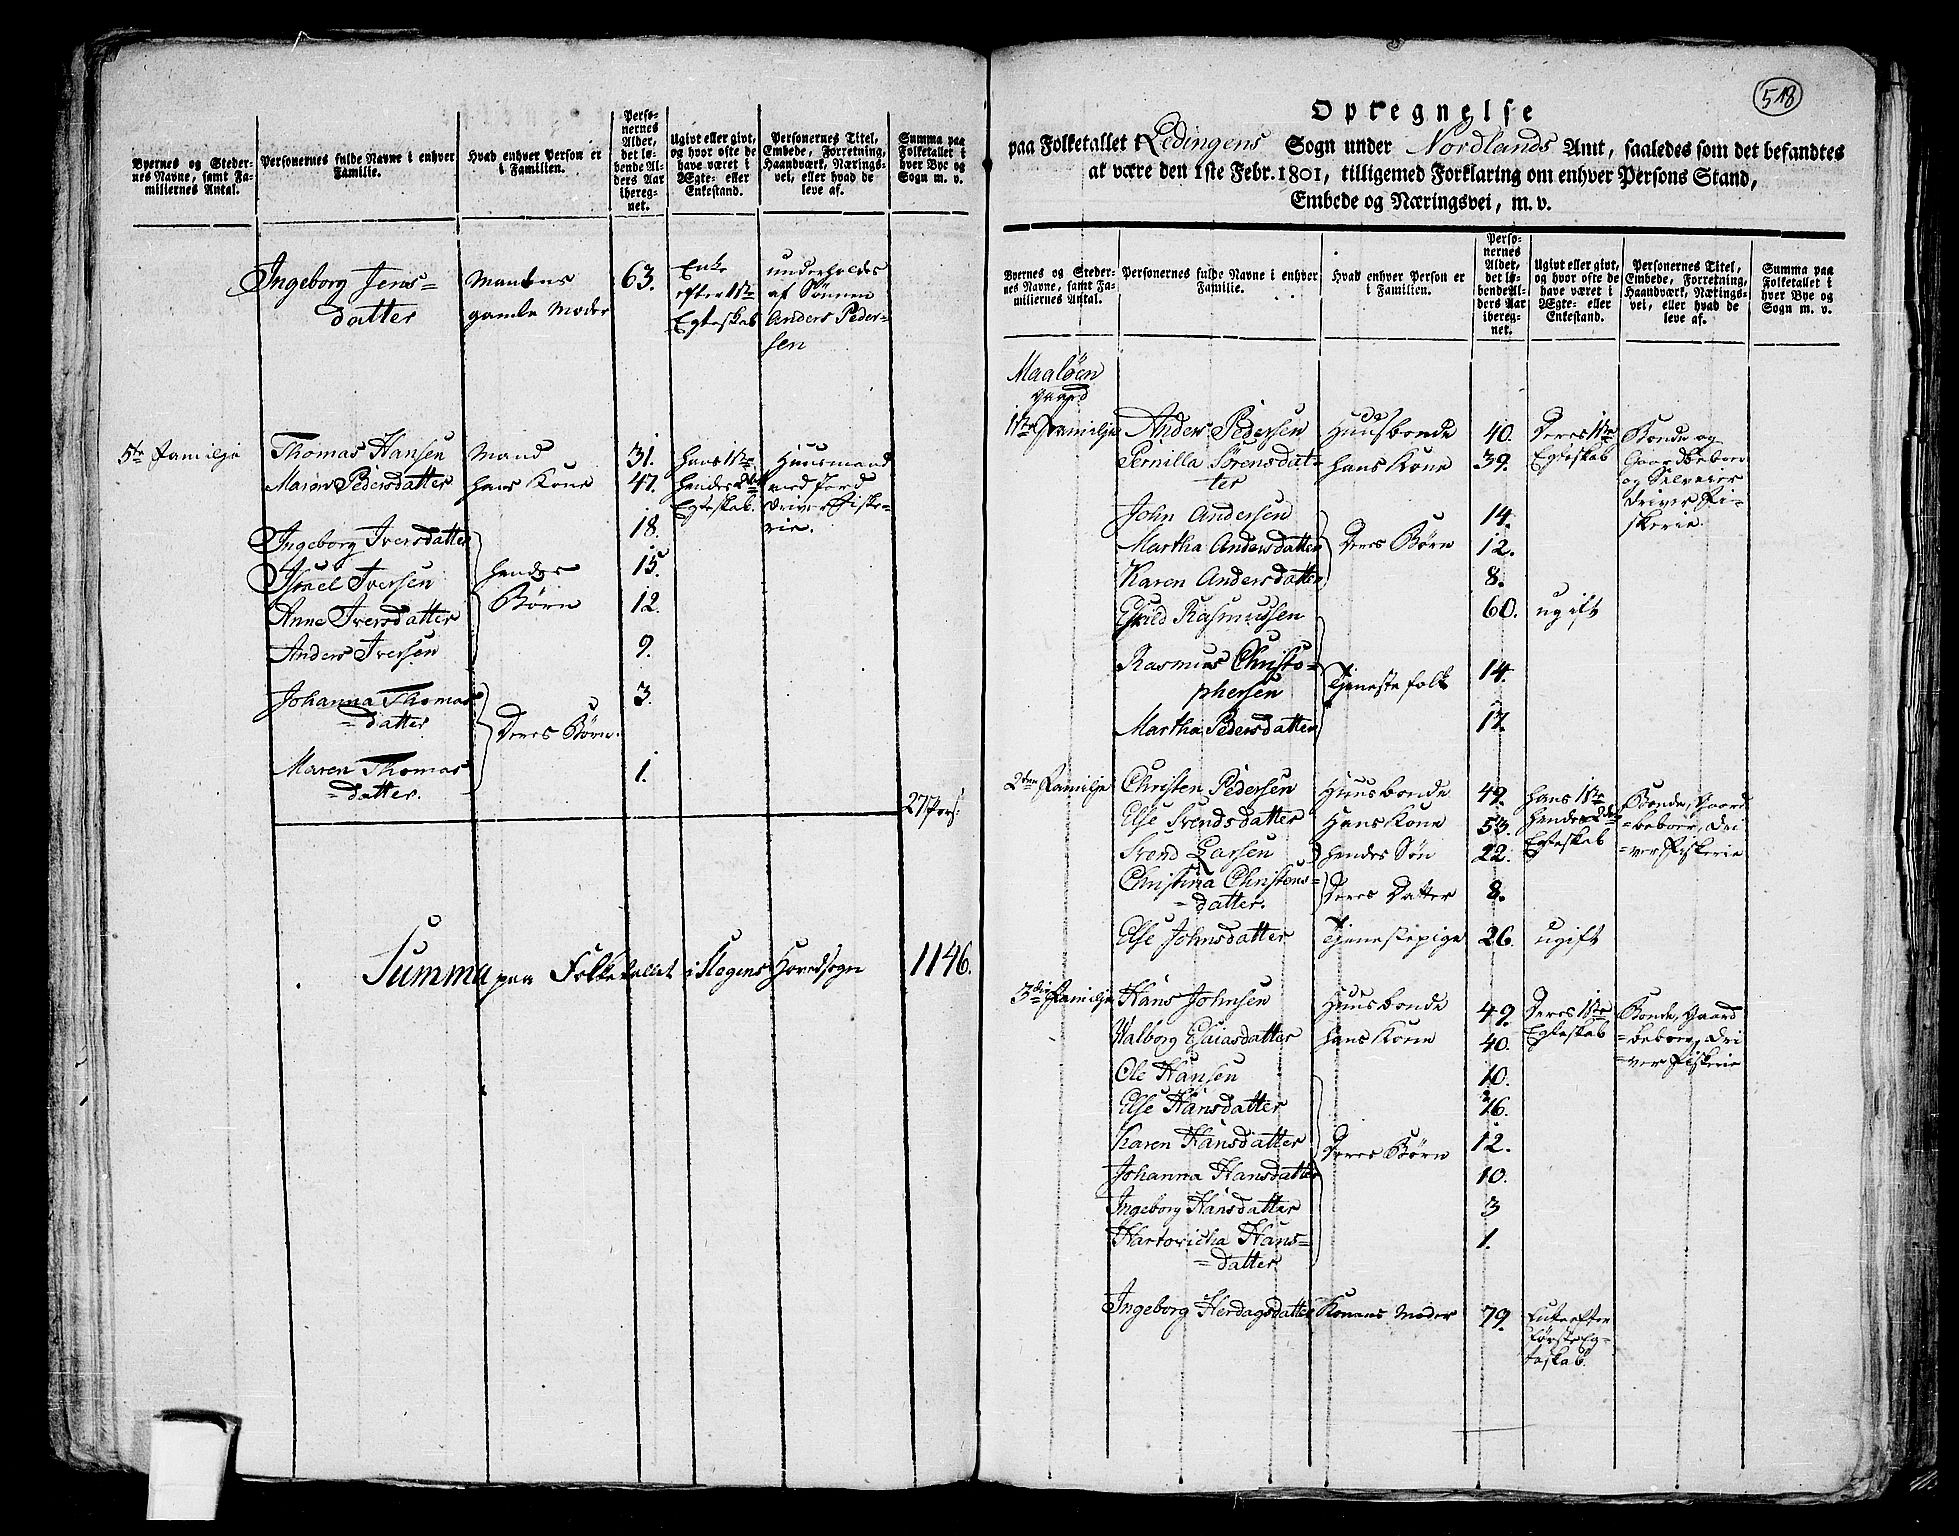 Byernes og Steder-
nes Navne, samt Fa-
miliernes Antal.
Personernes fulde Navne i enhver
Familie.
Hvad enhver Person er
i Familien.
Perso-
nernes
Alder,
det lø-
bende Al-
ders Aar
ibereg-
net.
Ugivt eller givt,
og hvor ofte de
have været i
Ægte- eller
Enkestand.
Personernes Titel,
Embede, Forretning,
Haandværk, Nærings-
vei, eller hvad de
leve af.
Summa paa
Folketallet i
hver Bye og
Sogn m. v.
Ingeborg Jens- Mandens 63. Enke underholdes
datter gamle Moder efter 1ste af Sønnen
Egteskab Anders Peder-
sen
5te Familje Thomas Hansen Mand 31. hans 1ste Huusmand
Maren Pedersdatter hans Kone 47. hendes 2det med Jord
Egteskab. driver Fiske-
rie.
Ingeborg Iversdatter 18.
Israel Iversen hendes 15.
Anne Iversdatter Børn 12.
Anders Iversen 9.
Johanna Thomas 3.
=datter. Deres Børn.
Maren Thomas 1.
=datter.
27 Pers.
Summa paa Folketallet i Stegens Hovedsogn 1146.
518
Opregnelse
paa Folketallet i Lødingens Sogn under Nordlands Amt, saaledes som det befandtes
at være den 1ste Febr. 1801, tilligemed Forklaring om enhver Persons Stand,
Embede og Næringsvei, m. v.
Byernes og Steder-
nes Navne, samt Fa-
miliernes Antal.
Personernes fulde Navne i enhver
Familie.
Hvad enhver Person er
i Familien.
Perso-
nernes
Alder,
det lø-
bende Al-
ders Aar
ibereg-
net.
Ugivt eller givt,
og hvor ofte de
have været i
Ægte- eller
Enkestand.
Personernes Titel,
Embede, Forretning,
Haandværk, Nærings-
vei, eller hvad de
leve af.
Summa paa
Folketallet i
hver Bye og
Sogn m. v.
Maaløen
Gaard
1ste Familje Anders Pedersen Huusbonde 40. Deres 1ste Bonde og
Pernilla Sørensdat- hans Kone 39. Egteskab Gaardbeboer
ter og Selveier
driver Fi-
skerie.
John Andersen 14.
Martha Andersdatter Deres Børn 12.
Karen Andersdatter 8.
Rasmussen 60. ugift
Rasmus Christo-
phersen Tjenestefolk 14.
Martha Pedersdatter 17.
2den Familje Christen Pedersen Huusbonde 49. hans 1ste Bonde, Gaard
Else Svendsdatter Hans Kone 53. hendes 2det =beboer, dri
Svend Larsen hendes Søn 22. Egteskab =ver Fiskerie
Christina Christens-
=datter. Deres Datter 8.
Else Johnsdatter Tjenestepige 26. ugift
3die Familje Hans Johnsen Huusbonde 49. Deres 1ste Bonde, Gaard
Walborg Esaiasdatter hans Kone 40. Egteskab =beboer, dri
=ver Fiskerie
Ole Hansen 10.
Else Hansdatter 16.
Karen Hansdatter Deres Børn 12.
Johanna Hansdatter 10.
Ingeborg Hansdatter 3
Hartvicha Hans= 1.
=datter.
Ingeborg Herdagsdatter Konens Moder 79. Enke efter
første Eg-
teskab.